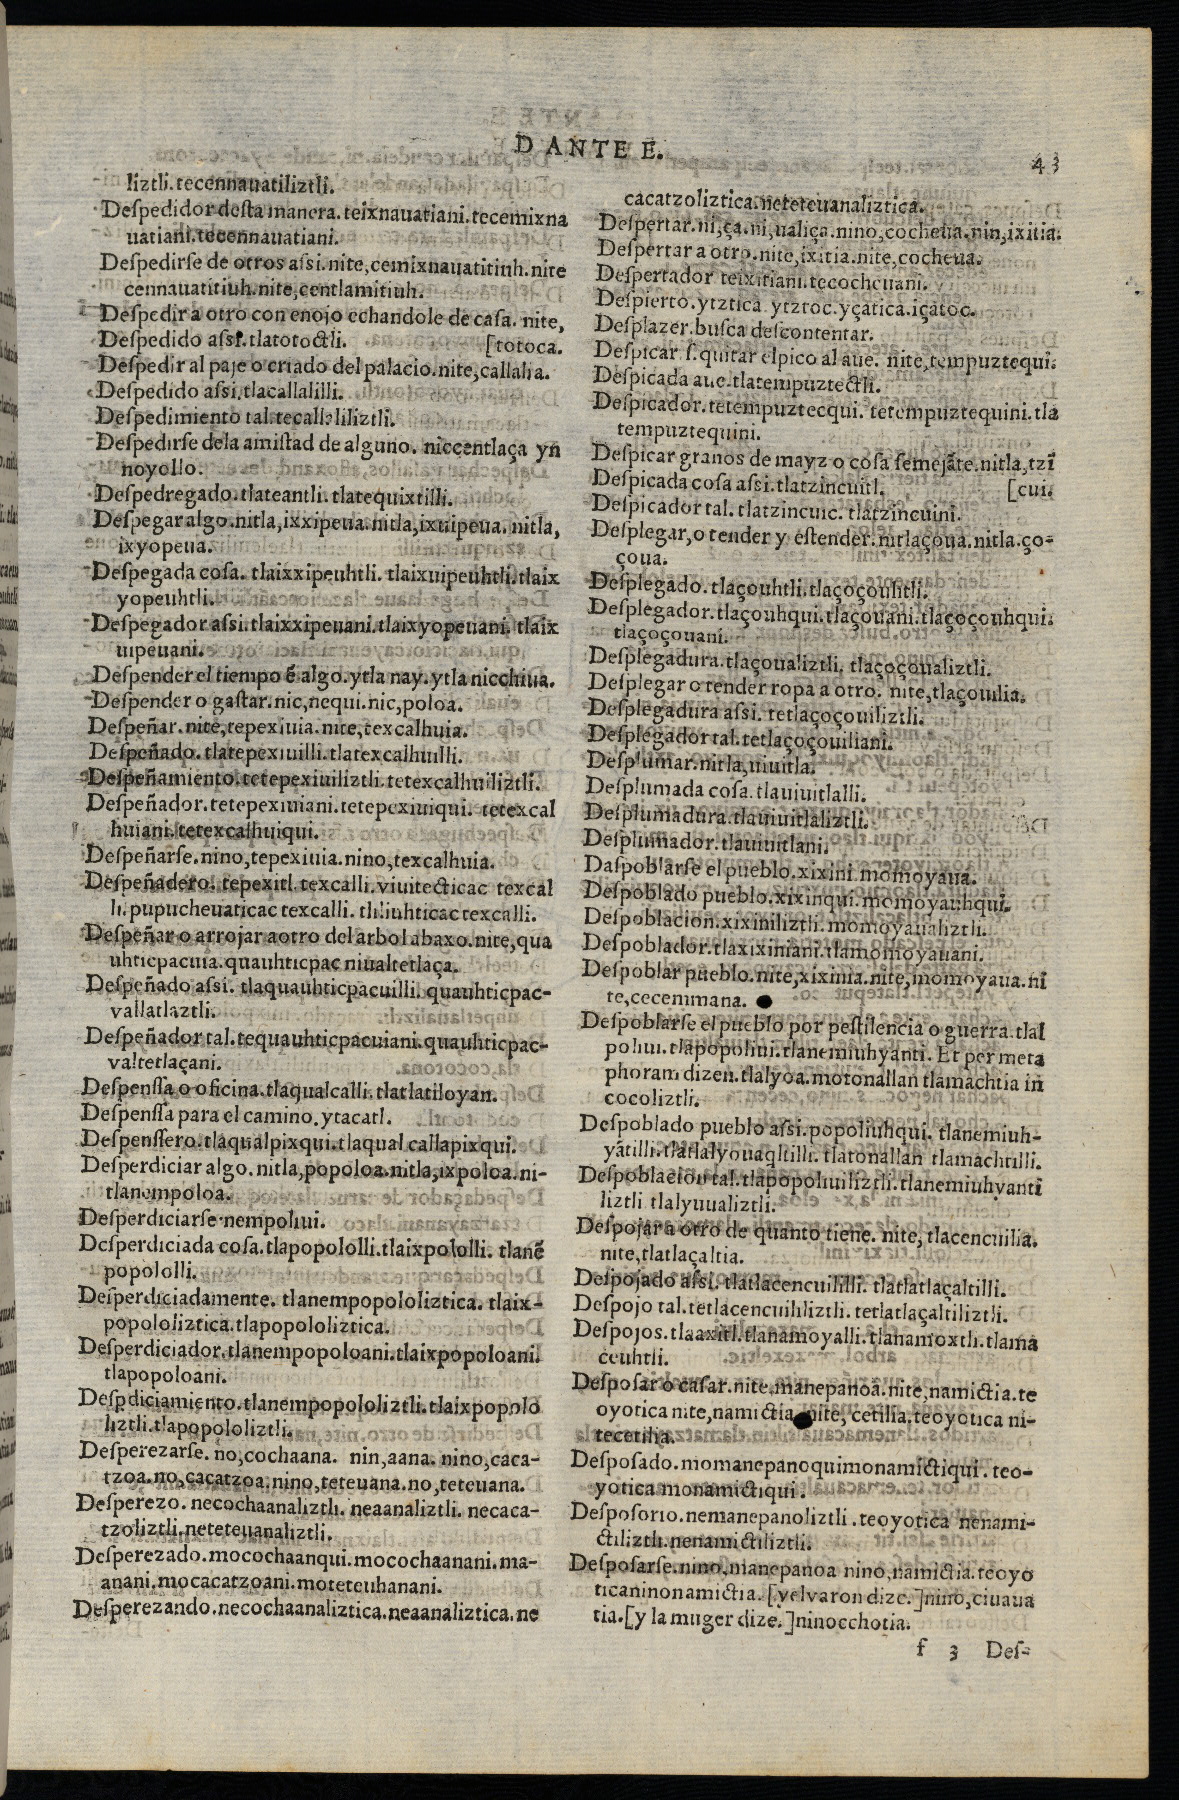 D ANTE E.
43
liztli.tecennauatiliztli.
Despedidor desta manera. teixnauatiani.tecemixna
uatiani.tecennauatiani.
Despedirse de otros assi.nite,cemixnauatitiuh.nite
cennauatitiuh.nite,centlamitiuh.
Despedir a otro con enojo echandole de casa. nite,
Despedido assi.tlatotoctli. [totoca.
Despedir al paje o criado del palacio.nite,callalia.
Despedido assi,tlacallalilli.
Despedimiento tal.tecallaliliztli.
Despedirse dela amistad de alguno. niccentlaça yn
noyollo.
Despedregado.tlateantli.tlatequixtilli.
Despegar algo.nitla,ixxipeua.nitla,ixuipeua. nitla,
ixyopeua.
Despegada cosa. tlaixxipeuhtli. tlaixuipeuhtli.tlaix
yopeuhtli.
Despegador assi.tlaixxipeuani.tlaixyopeuani. tlaix
uipeuani.
Despender el tiempo ē algo.ytla nay.ytla nicchiua.
Despender o gastar.nic,nequi.nic,poloa.
Despeñar.nite,tepexiuia.nite,texcalhuia.
Despeñado. tlatepexiuilli.tlatexcalhuilli.
Despeñamiento.tetepexiuiliztli.tetexcalhuiliztli.
Despeñador.tetepexiuiani.tetepexiuiqui. tetexcal
huiani.tetexcalhuiqui.
Despeñarse.nino,tepexiuia.nino,texcalhuia.
Despeñadero. tepexitl.texcalli.viuitecticac texcal
li.pupucheuaticac texcalli.tliliuhticac texcalli.
Despeñar o arrojar aotro del arbol abaxo.nite,qua
uhticpacuia.quauhticpac niualtetlaça.
Despeñado assi. tlaquauhticpacuilli. quauhticpac-
vallatlaztli.
Despeñador tal.tequauhticpacuiani.quauhticpac-
valtetlaçani.
Despenssa o oficina.tlaqualcalli.tlatlatiloyan.
Despenssa para el camino.ytacatl.
Despenssero.tlaqualpixqui.tlaqual callapixqui.
Desperdiciar algo.nitla,popoloa.nitla,ixpoloa.ni-
tlanempoloa.
Desperdiciarse nempoliui.
Desperdiciada cosa.tlapopololli.tlaixpololli. tlanē
popololli.
Desperdiciadamente. tlanempopololiztica. tlaix-
popololiztica.tlapopololiztica.
Desperdiciador.tlanempopoloani.tlaixpopoloani.
tlapopoloani.
Despdiciamiento.tlanempopololiztli.tlaixpopolo
liztli.tlapopololiztli.
Desperezarse. no,cochaana. nin,aana. nino,caca-
tzoa.no,cacatzoa.nino,teteuana.no,teteuana.
Desperezo.necochaanaliztli. neaanaliztli. necaca-
tzoliztli.neteteuanaliztli.
Desperezado.mocochaanqui.mocochaanani.ma-
anani.mocacatzoani.moteteuhanani.
Desperezando.necochaanaliztica.neaanaliztica.ne
cacatzoliztica.neteteuanaliztica.
Despertar.ni,ça.ni,ualiça.nino,cocheua.nin,ixitia.
Despertar a otro.nite,ixitia.nite,cocheua.
Despertador teixitiani.tecocheuani.
Despierto.ytztica ytztoc.yçatica.içatoc.
Desplazer.busca descontentar.
Despicar.s.quitar el pico al aue. nite,tempuztequi.
Despicada aue.tlatempuztectli.
Despicador.tetempuztecqui. tetempuztequini.tla
tempuztequini.
Despicar granos de mayz o cosa semejāte.nitla,tzī
Despicada cosa assi.tlatzincuitl. [cui.
Despicador tal. tlatzincuic. tlatzincuini.
Desplegar,o tender y estender.nitlaçoua.nitla.ço-
çoua.
Desplegado.tlaçouhtli.tlaçoçouhtli.
Desplegador.tlaçouhqui.tlaçouani.tlaçoçouhqui.
tlaçoçouani.
Desplegadura.tlaçoualiztli. tlaçoçoualiztli.
Desplegar o tender ropa a otro. nite,tlaçouilia.
Desplegadura assi. tetlaçoçouiliztli.
Desplegador tal.tetlaçoçouiliani.
Desplumar.nitla,uiuitla.
Desplumada cosa.tlauiuitlalli.
Desplumadura.tlauiuitlaliztli.
Desplumador.tlauiuitlani.
Daspoblarse el pueblo.xixini.momoyaua.
Despoblado pueblo.xixinqui.momoyauhqui.
Despoblacion.xixiniliztli.momoyaualiztli.
Despoblador.tlaxixiniani.tlamomoyauani.
Despoblar pueblo.nite,xixinia.nite,momoyaua.ni
te,cecenmana.
Despoblarse el pueblo por pestilencia o guerra.tlal
poliui.tlapopoliui.tlanemiuhyanti. Et per meta
phoram dizen.tlalyoa.motonallan tlamachtia in
cocoliztli.
Despoblado pueblo assi.popoliuhqui. tlanemiuh-
yātilli.tlatlalyouaqltilli. tlatonallan tlamachtilli.
Despoblacion tal.tlapopoliuiliztli.tlanemiuhyanti
liztli tlalyuualiztli.
Despojar a otro de quanto tiene. nite, tlacencuilia.
nite,tlatlaçaltia.
Despojado assi. tlatlacencuililli. tlatlatlaçaltilli.
Despojo tal.tetlacencuililiztli. tetlatlaçaltiliztli.
Despojos.tlaaxitl.tlanamoyalli.tlanamoxtli.tlama
ceuhtli.
Desposar o casar.nite,manepanoa.nite,namictia.te
oyotica nite,namictia nite, cetilia.teoyotica ni-
tecetilia.
Desposado.momanepanoqui monamictiqui. teo-
yotica monamictiqui.
Desposorio.nemanepanoliztli.teoyotica nenami-
ctiliztli.nenamictiliztli.
Desposarse.nino,manepanoa nino,namictia.teoyo
ticaninonamictia. [yelvaron dize.]nino,ciuaua
tia.[y la muger dize.]ninoochotia.
f 3 Des-